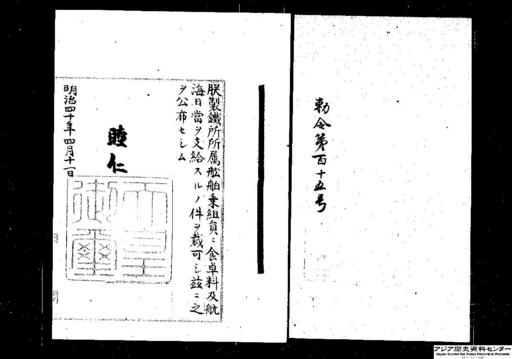 勅令第百十五号
朕製鐵所所属舩舶乗組員ニ食卓料及航
海日當ヲ支給スルノ件ヲ裁可シ茲ニ之
ヲ公布セシム
睦仁
天皇御璽
明治四十年四月十一日
アジア歴史資料センター
Japan Center for Asian Historical Records